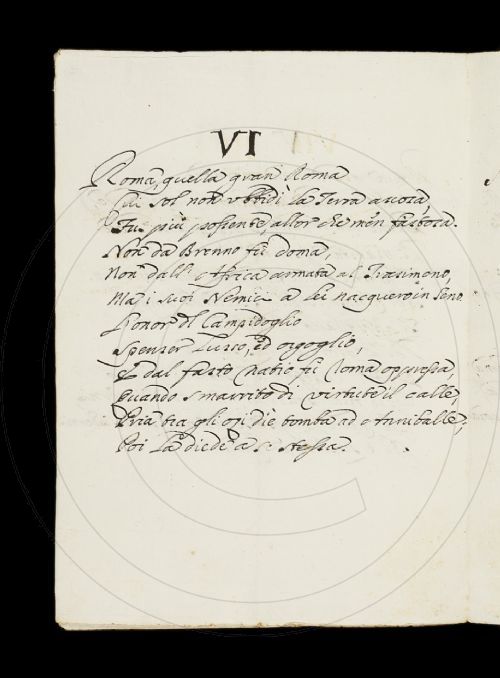 VI
Roma, quella gran Roma
Cui sol non vbbidì la Terra ascosa,
Fu più possente, allor che men fastosa.
Non da Brenno fu doma,
Non dall' Affrica armata al Trasimeno,
Ma i suoi Nemici a lei nacquero in seno
L'onor del Campidoglio
Spenser Lusso, ed orgoglio,
E dal fasto natio fu Roma oppressa,
Quando smarrito di virtute il calle,
Pria tra gli ozi die tomba ad Anniballe,
Poi la diede a se stessa.